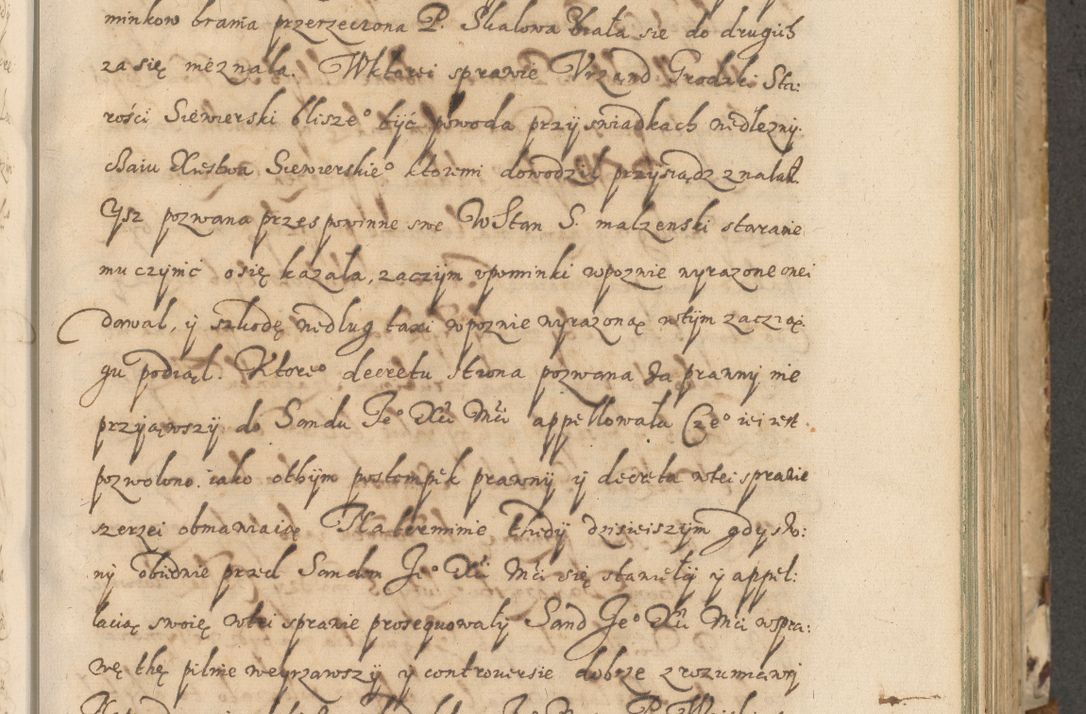 minkow brania przerzeczona P. Skalowa brała się do drugich
za się nieznała. Wktorei sprawie Vrząnd Grodzki Sta:
rości Siewierski bliszeº być powoda przy swiadkach wedle zwy:
czaiu Xięstwa Siewierskieº ktoremi dowodził przysiądz znalazł.
Ysz pozwana przes powinne swe WStan S. malzenski staranie
mu czynić o się kazała, zaczym vpominki wpoznie wyrazone onei
dawal, y szkodę wedlug taxi wpoznie wyrazoną wtym zaczią:
gu podiął. Ktoreº decretu strona pozwana za prawny nie
przyiąwszy do Sandu Jeº Xci Mci appellowała Czeº iei iest
pozwolono. iako othym postompek prawny y decreta wtei sprawie
szerzei obmawiaię Na terminie thedy dzisieiszym gdy stro:
ny obiedwie przed Sandem Jeº Xci Mci się staneły y appel:
lacią swoię wtei sprawie prosequowaly Sand Jeº Xci Mci wspra:
wę thę pilnie weyrzawszy y controversie dobrze zrozumiawszy